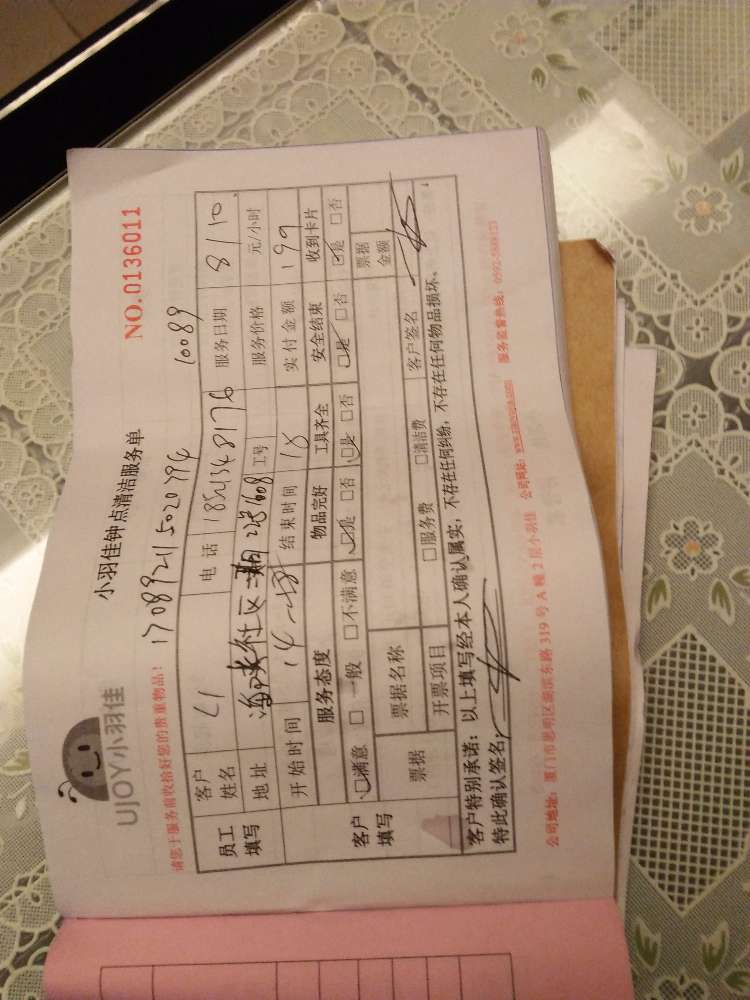 UJOY小羽佳
小羽佳钟点清洁服务单
NO.0136011
请您于服务前收拾好您的贵重物品!
10089
员工填写
客户姓名 电话 服务日期 8/10.
地址 工号 服务价格 元/小时
开始时间 14 结束时间 18 实付金额 199
客户填写
服务态度 物品完好 工具齐全 安全结束 收到卡片
☑满意 □一般 □不满意 ☑是 □否 ☑是 □否 ☑是 □否 ☑是 □否
票据 票据名称 票据金额
开票项目 □服务费 □清洁费 客户签名
客户特别承诺: 以上填写经本人确认属实, 不存在任何纠纷, 不存在任何物品损坏。
特此确认签名:
公司地址: 厦门市思明区湖滨东路 319 号 A 幢 2 层小羽佳 公司网站: 服务监督热线: